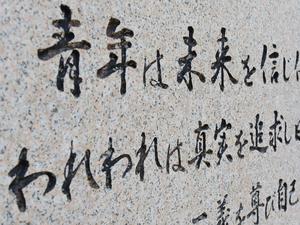 青年は未来を信じ
われわれは真実を追求し
一義を尊び自己